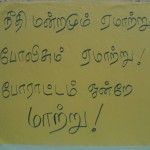 நீதி மன்றமும் ஏமாற்று
போலிசும் ஏமாற்று!
போராட்டம் ஒன்றே
மாற்று!